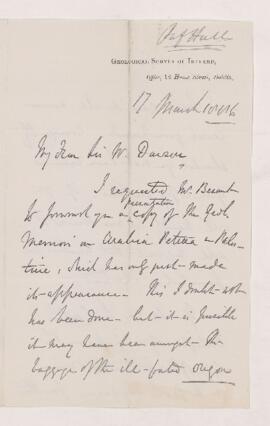 Prof Hull
GEOLOGICAL SURVEY OF IRELAND,
Office, 14 Hume Street, Dublin,
17 March 1886
My Dear Sir W. Dawson
I requested Mr. Besant
presentation
to forward you a copy of the Geol.
Memoir on Arabia Petræa & Pales-
tine, which has only just made
its appearance. This I doubt not
has been done - but it is possible
it may have been amongst the
baggage of the ill-fated Oregon